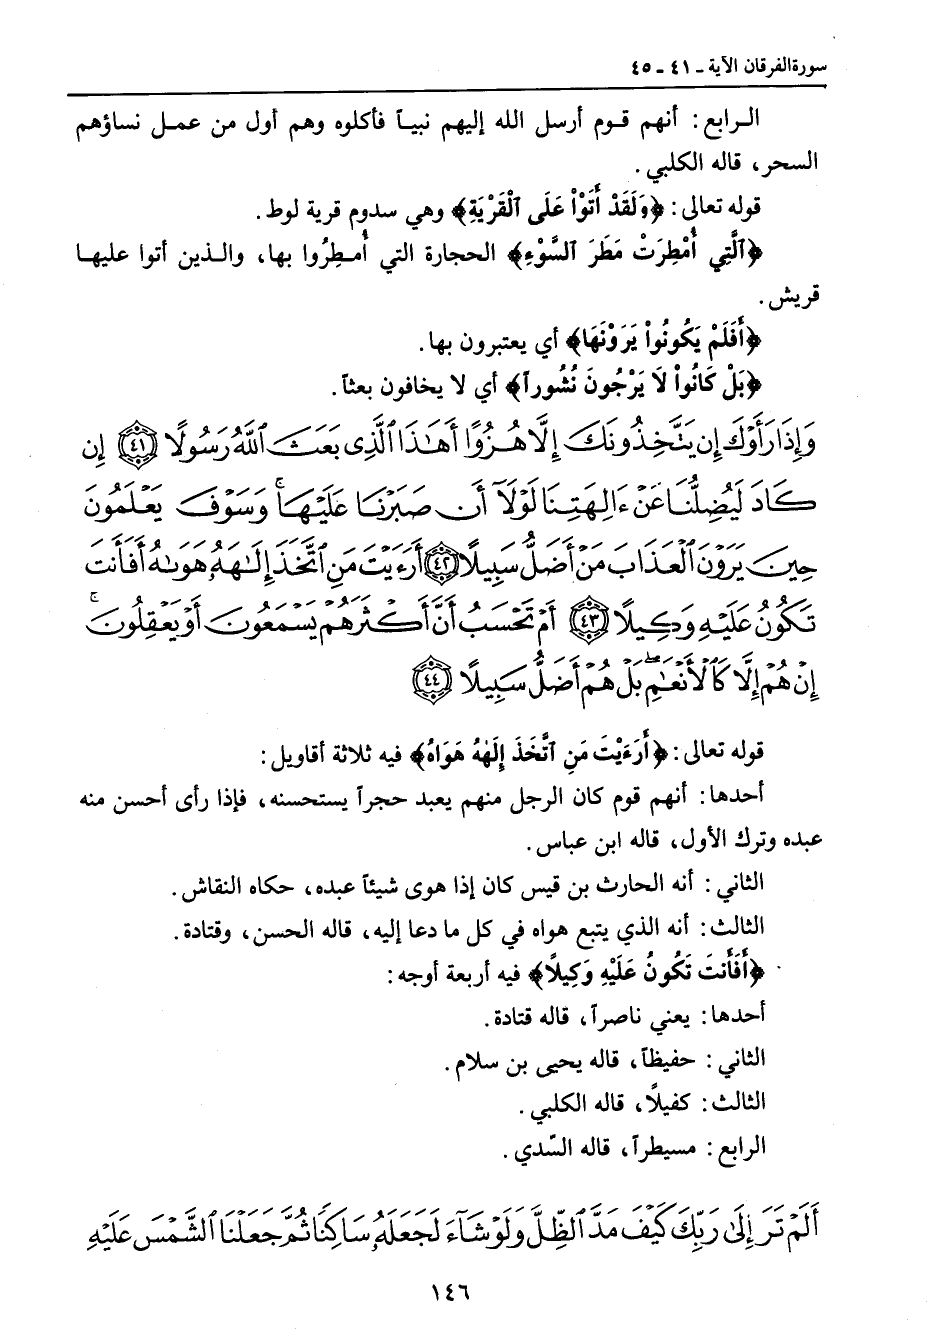 سورة الفرقان الآية ـ ٤١ ـ ٤٥
الـرابع: أنهم قـوم أرسل الله إليهم نبيـاً فأكلوه وهم أول من عمـل نساؤهم
السحر، قاله الكلبي.
قوله تعالى: ﴿وَلَقَدْ أَتَوْاْ عَلَى ٱلْقَرْيَةِ﴾ وهي سدوم قرية لوط.
﴿ٱلَّتِي أُمْطِرَتْ مَطَرَ ٱلسَّوْءِ﴾ الحجارة التي أُمـطِرُوا بها، والـذين أتوا عليهـا
قريش.
﴿أَفَلَمْ يَكُونُواْ يَرَوْنَهَا﴾ أي يعتبرون بها.
﴿بَلْ كَانُواْ لَا يَرْجُونَ نُشُوراً﴾ أي لا يخافون بعثاً.
وَإِذَا رَأَوْكَ إِن يَتَّخِذُونَكَ إِلَّا هُزُوًا أَهَٰذَا ٱلَّذِى بَعَثَ ٱللَّهُ رَسُولًا ﴿٤١﴾ إِن
كَادَ لَيُضِلُّنَا عَنْ ءَالِهَتِنَا لَوْلَآ أَن صَبَرْنَا عَلَيْهَا ۚ وَسَوْفَ يَعْلَمُونَ
حِينَ يَرَوْنَ ٱلْعَذَابَ مَنْ أَضَلُّ سَبِيلًا ﴿٤٢﴾ أَرَءَيْتَ مَنِ ٱتَّخَذَ إِلَٰهَهُۥ هَوَىٰهُ أَفَأَنتَ
تَكُونُ عَلَيْهِ وَكِيلًا ﴿٤٣﴾ أَمْ تَحْسَبُ أَنَّ أَكْثَرَهُمْ يَسْمَعُونَ أَوْ يَعْقِلُونَ ۚ
إِنْ هُمْ إِلَّا كَٱلْأَنْعَٰمِ ۖ بَلْ هُمْ أَضَلُّ سَبِيلًا ﴿٤٤﴾
قوله تعالى: ﴿أَرَءَيْتَ مَنِ ٱتَّخَذَ إِلَٰهَهُ هَوَاهُ﴾ فيه ثلاثة أقاويل:
أحدها: أنهم قوم كان الرجل منهم يعبد حجراً يستحسنه، فإذا رأى أحسن منه
عبده وترك الأول، قاله ابن عباس.
الثاني: أنه الحارث بن قيس كان إذا هوى شيئاً عبده، حكاه النقاش.
الثالث: أنه الذي يتبع هواه في كل ما دعا إليه، قاله الحسن، وقتادة.
﴿أَفَأَنتَ تَكُونُ عَلَيْهِ وَكِيلًا﴾ فيه أربعة أوجه:
أحدها: يعني ناصراً، قاله قتادة.
الثاني: حفيظاً، قاله يحيى بن سلام.
الثالث: كفيلًا، قاله الكلبي.
الرابع: مسيطراً، قاله السّدي.
أَلَمْ تَرَ إِلَىٰ رَبِّكَ كَيْفَ مَدَّ ٱلظِّلَّ وَلَوْ شَآءَ لَجَعَلَهُۥ سَاكِنًا ثُمَّ جَعَلْنَا ٱلشَّمْسَ عَلَيْهِ
١٤٦